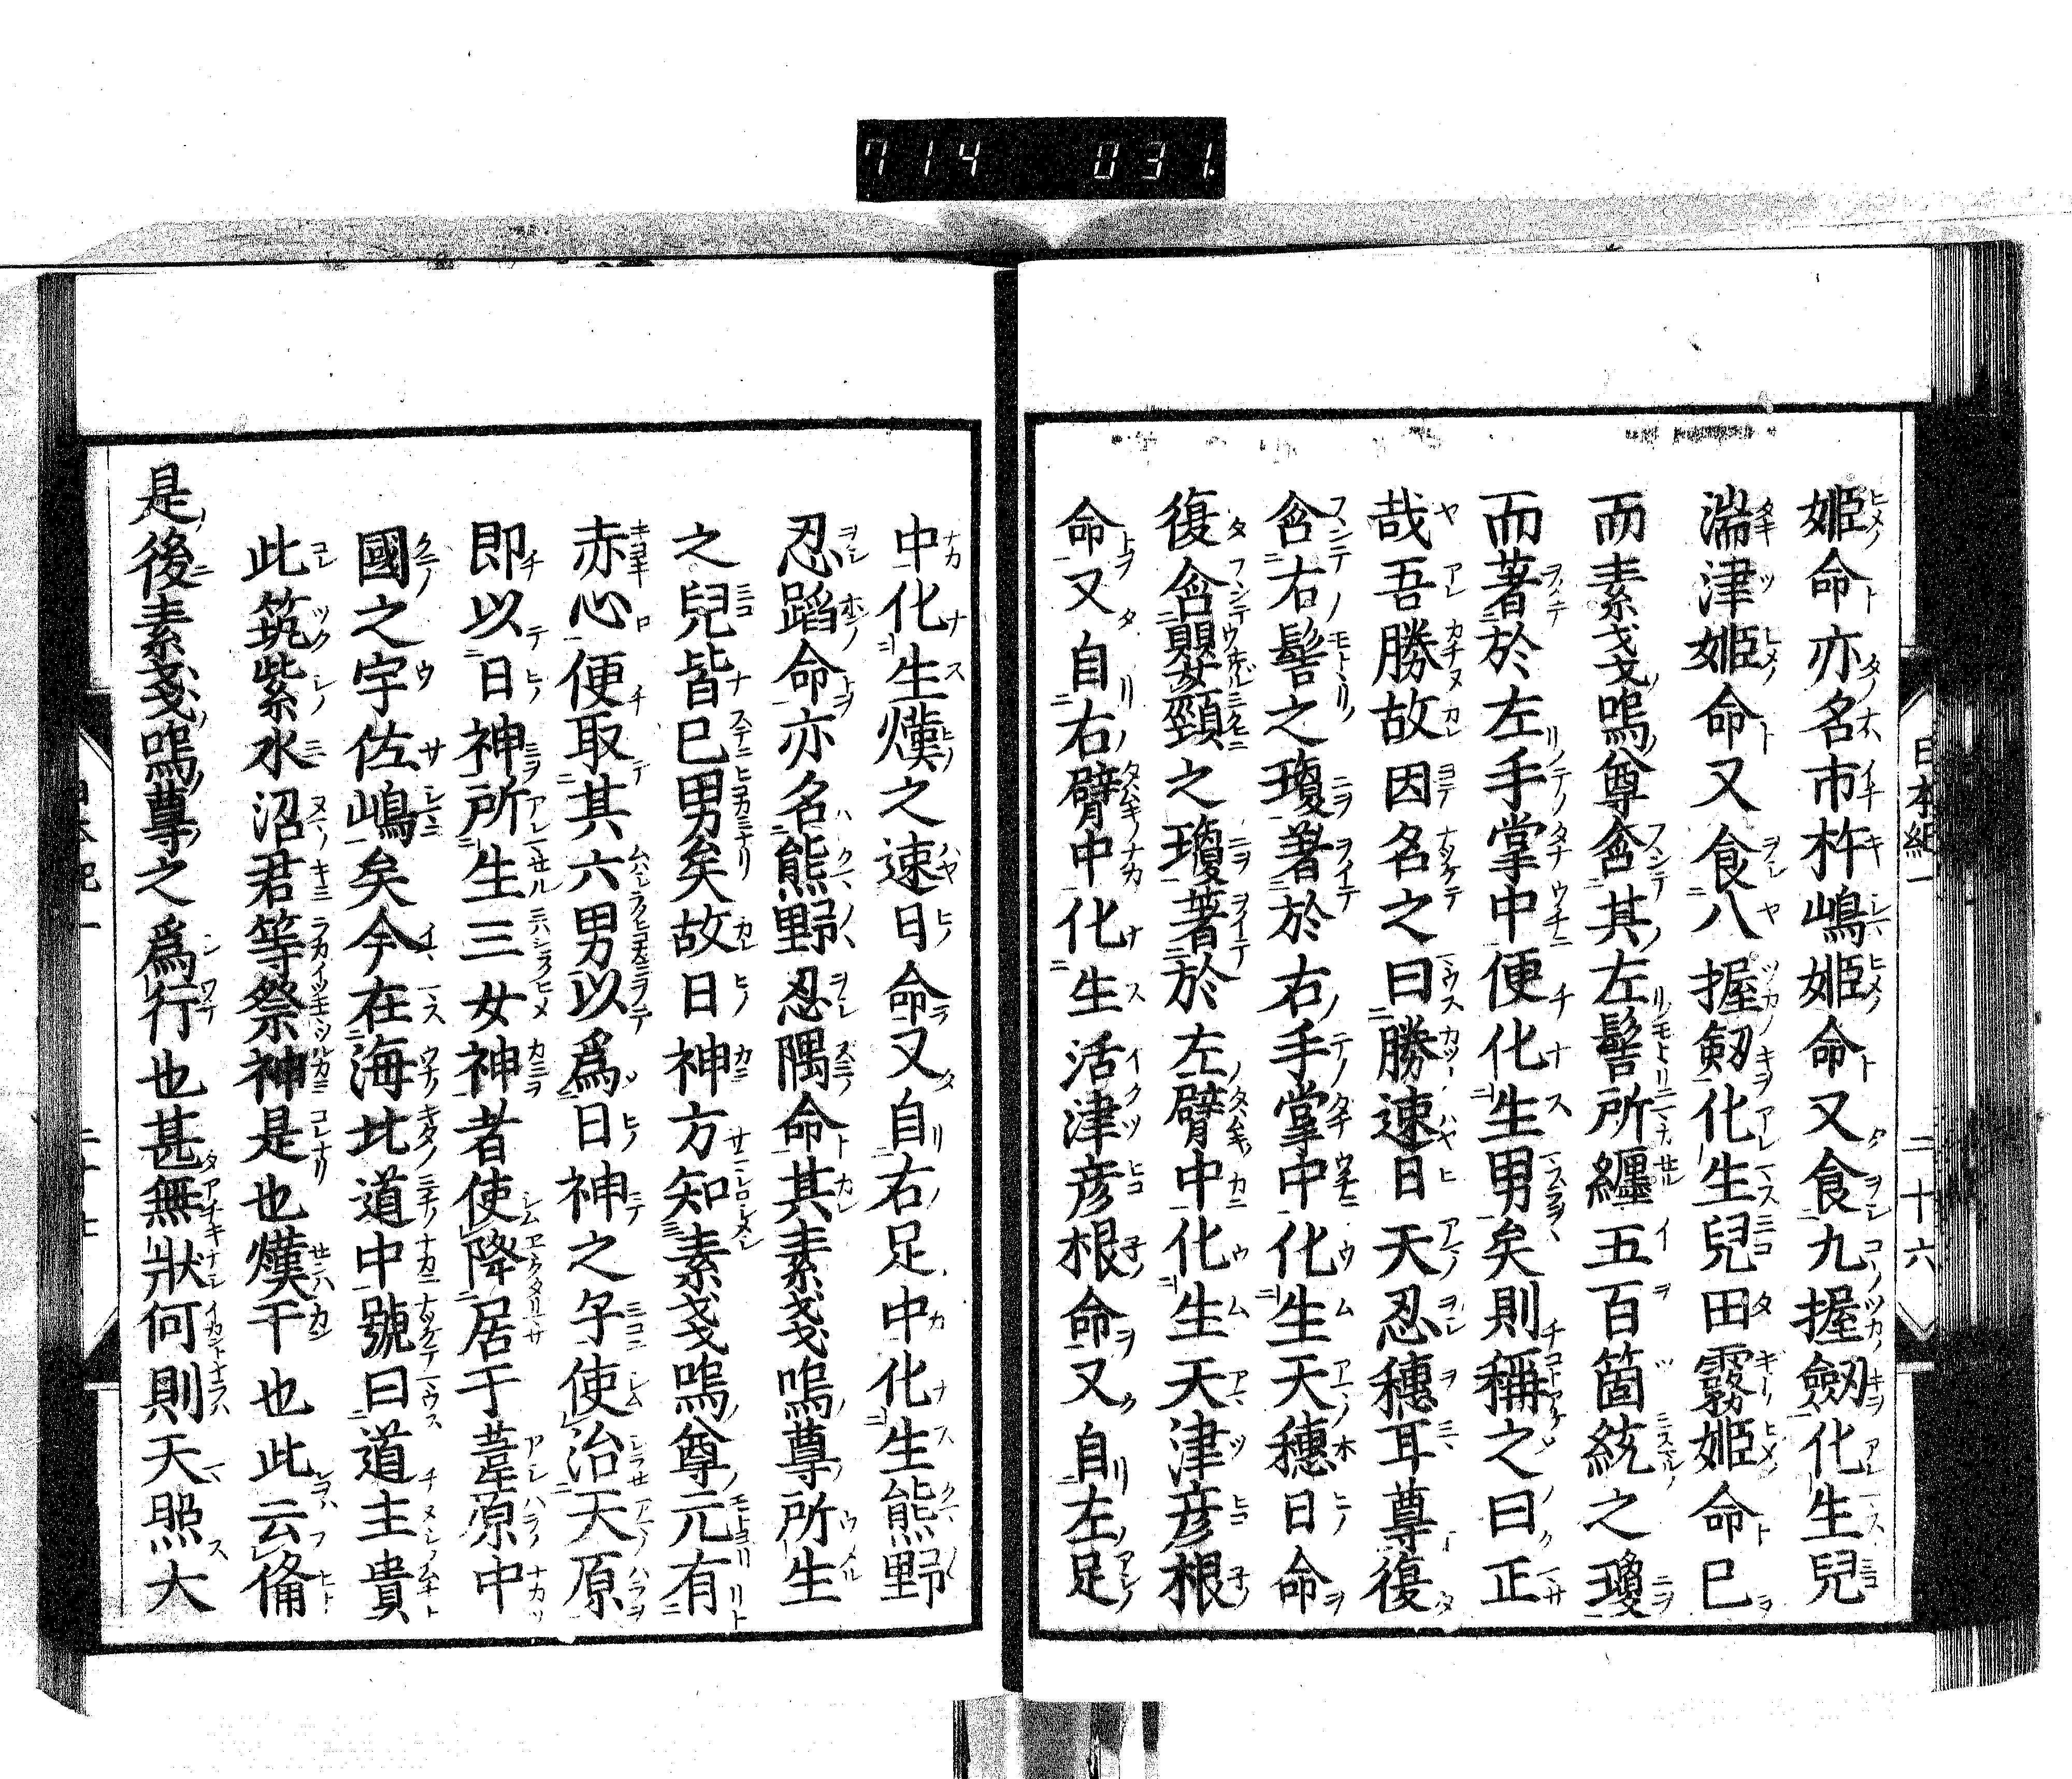 714 031
日本紀一 二十六
姫命亦名市杵嶋姫命又食九握劔化生兒
湍津姫命又食八握劔化生兒田霧姫命已
而素戔嗚尊含其左髻所纏五百箇統之瓊
而著於左手掌中便化生男矣則稱之曰正
哉吾勝故因名之曰勝速日天忍穗耳尊復
含右髻之瓊著於右手掌中化生天穗日命
復含嬰頸之瓊著於左臂中化生天津彦根
命又自右臂中化生活津彦根命又自左足
中化生熯之速日命又自右足中化生熊野
忍蹈命亦名熊野忍隅命其素戔嗚尊所生
之兒皆已男矣故日神方知素戔嗚尊元有
赤心便取其六男以爲日神之子使治天原
即以日神所生三女神者使降居于葦原中
國之宇佐嶋矣今在海北道中號曰道主貴
此筑紫水沼君等祭神是也熯干也此云備
是後素戔嗚尊之爲行也甚無狀何則天照大